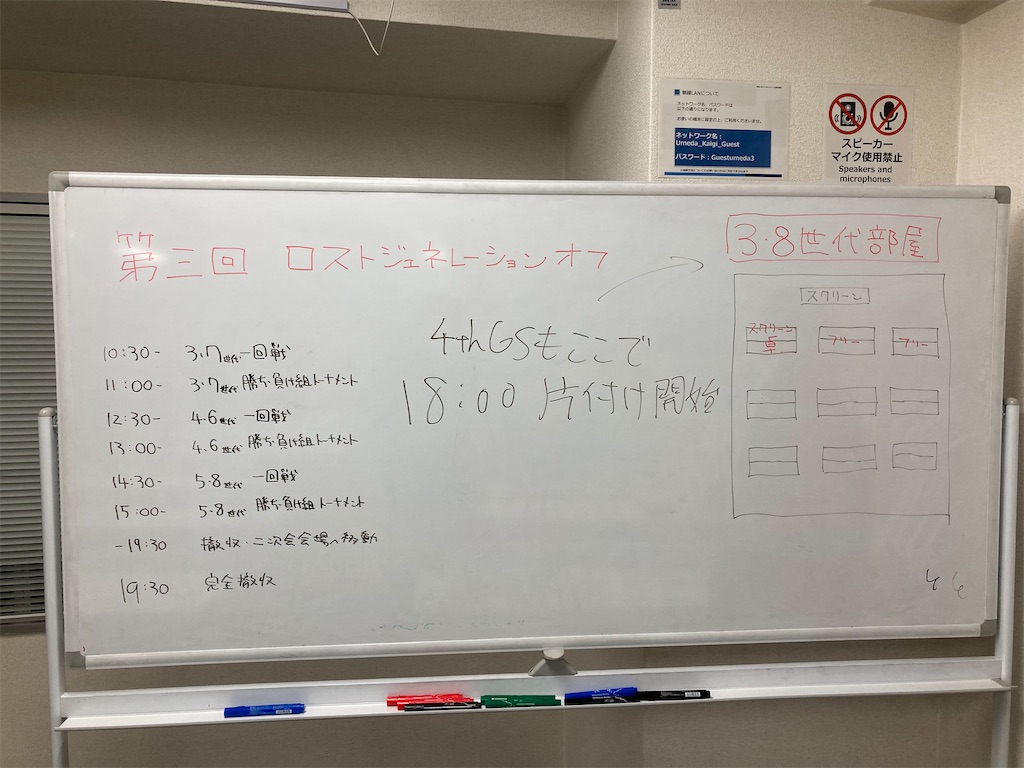 無線LANについて
ネットワーク名、パスワードは
以下の通りになります。
お使いの端末に設定の上、ご利用くださいませ。
ネットワーク名:
Umeda_Kaigi_Guest
パスワード:Guestumeda3
スピーカー
マイク使用禁止
Speakers and
microphones
第三回 ロストジェネレーションオフ
10:30- 3.7世代 一回戦
11:00- 3.7世代 勝ち・負け組トーナメント
12:30- 4.6世代 一回戦
13:00- 4.6世代 勝ち・負け組トーナメント
14:30- 5.8世代 一回戦
15:00- 5.8世代 勝ち・負け組トーナメント
-19:30 撤収・二次会会場へ移動
19:30 完全撤収
4thGSもここで
18:00 片付け開始
3・8世代部屋
スクリーン
スクリーン卓
フリー
フリー